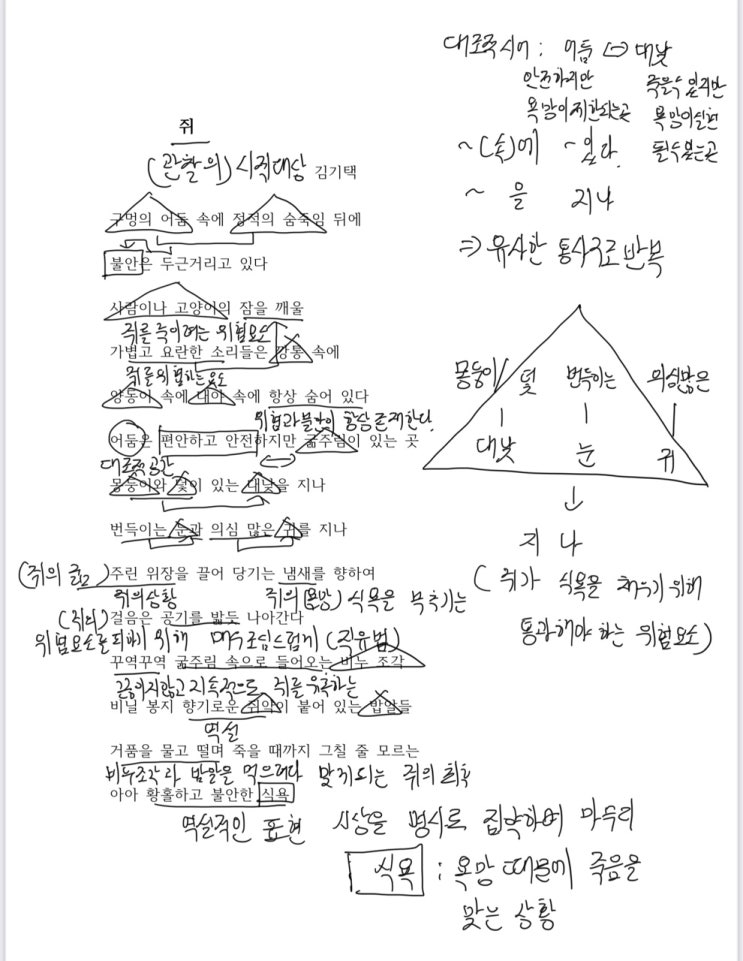 대조적 시어 : 어둠 ⇔ 대낮
안전하지만 죽을 수 있지만
욕망이 제한되는 곳 욕망이 실현
~(속)에 ~있다. 될 수 있는 곳
~ 을 지나
⇒ 유사한 통사구조 반복
쥐
(관찰의) 시적대상 김기택
구멍의 어둠 속에 정적의 숨죽임 뒤에
불안은 두근거리고 있다
사람이나 고양이의 잠을 깨울
쥐를 죽이려는 위험요소
가볍고 요란한 소리들은 깡통 속에
쥐를 위협하는 요소
양동이 속에 대야 속에 항상 숨어 있다
위험과 불안이 항상 존재한다.
어둠은 편안하고 안전하지만 굶주림이 있는 곳
대조적 공간
몽둥이와 덫이 있는 대낮을 지나
번득이는 눈과 의심 많은 귀를 지나
몽둥이/덫 번득이는 의심많은
대낮 눈 귀
지나
(쥐가 식욕을 채우기 위해
통과해야 하는 위험요소)
주린 위장을 끌어 당기는 냄새를 향하여
쥐의 상황 쥐의 (욕망) 식욕을 부추기는
(쥐의)
걸음은 공기를 밟듯 나아간다
위험요소를 피하기 위해 매우 조심스럽게 (직유법)
꾸역꾸역 굶주림 속으로 들어오는 비누 조각
끊이지않고 지속적으로 쥐를 유혹하는
비닐 봉지 향기로운 쥐약이 붙어 있는 밥알들
역설
거품을 물고 떨며 죽을 때까지 그칠 줄 모르는
비누조각과 밥알을 먹으려다 맞게되는 쥐의 최후
아아 황홀하고 불안한 식욕
역설적인 표현 시상을 명사로 집약하여 마무리
식욕 : 욕망 때문에 죽음을
맞는 상황